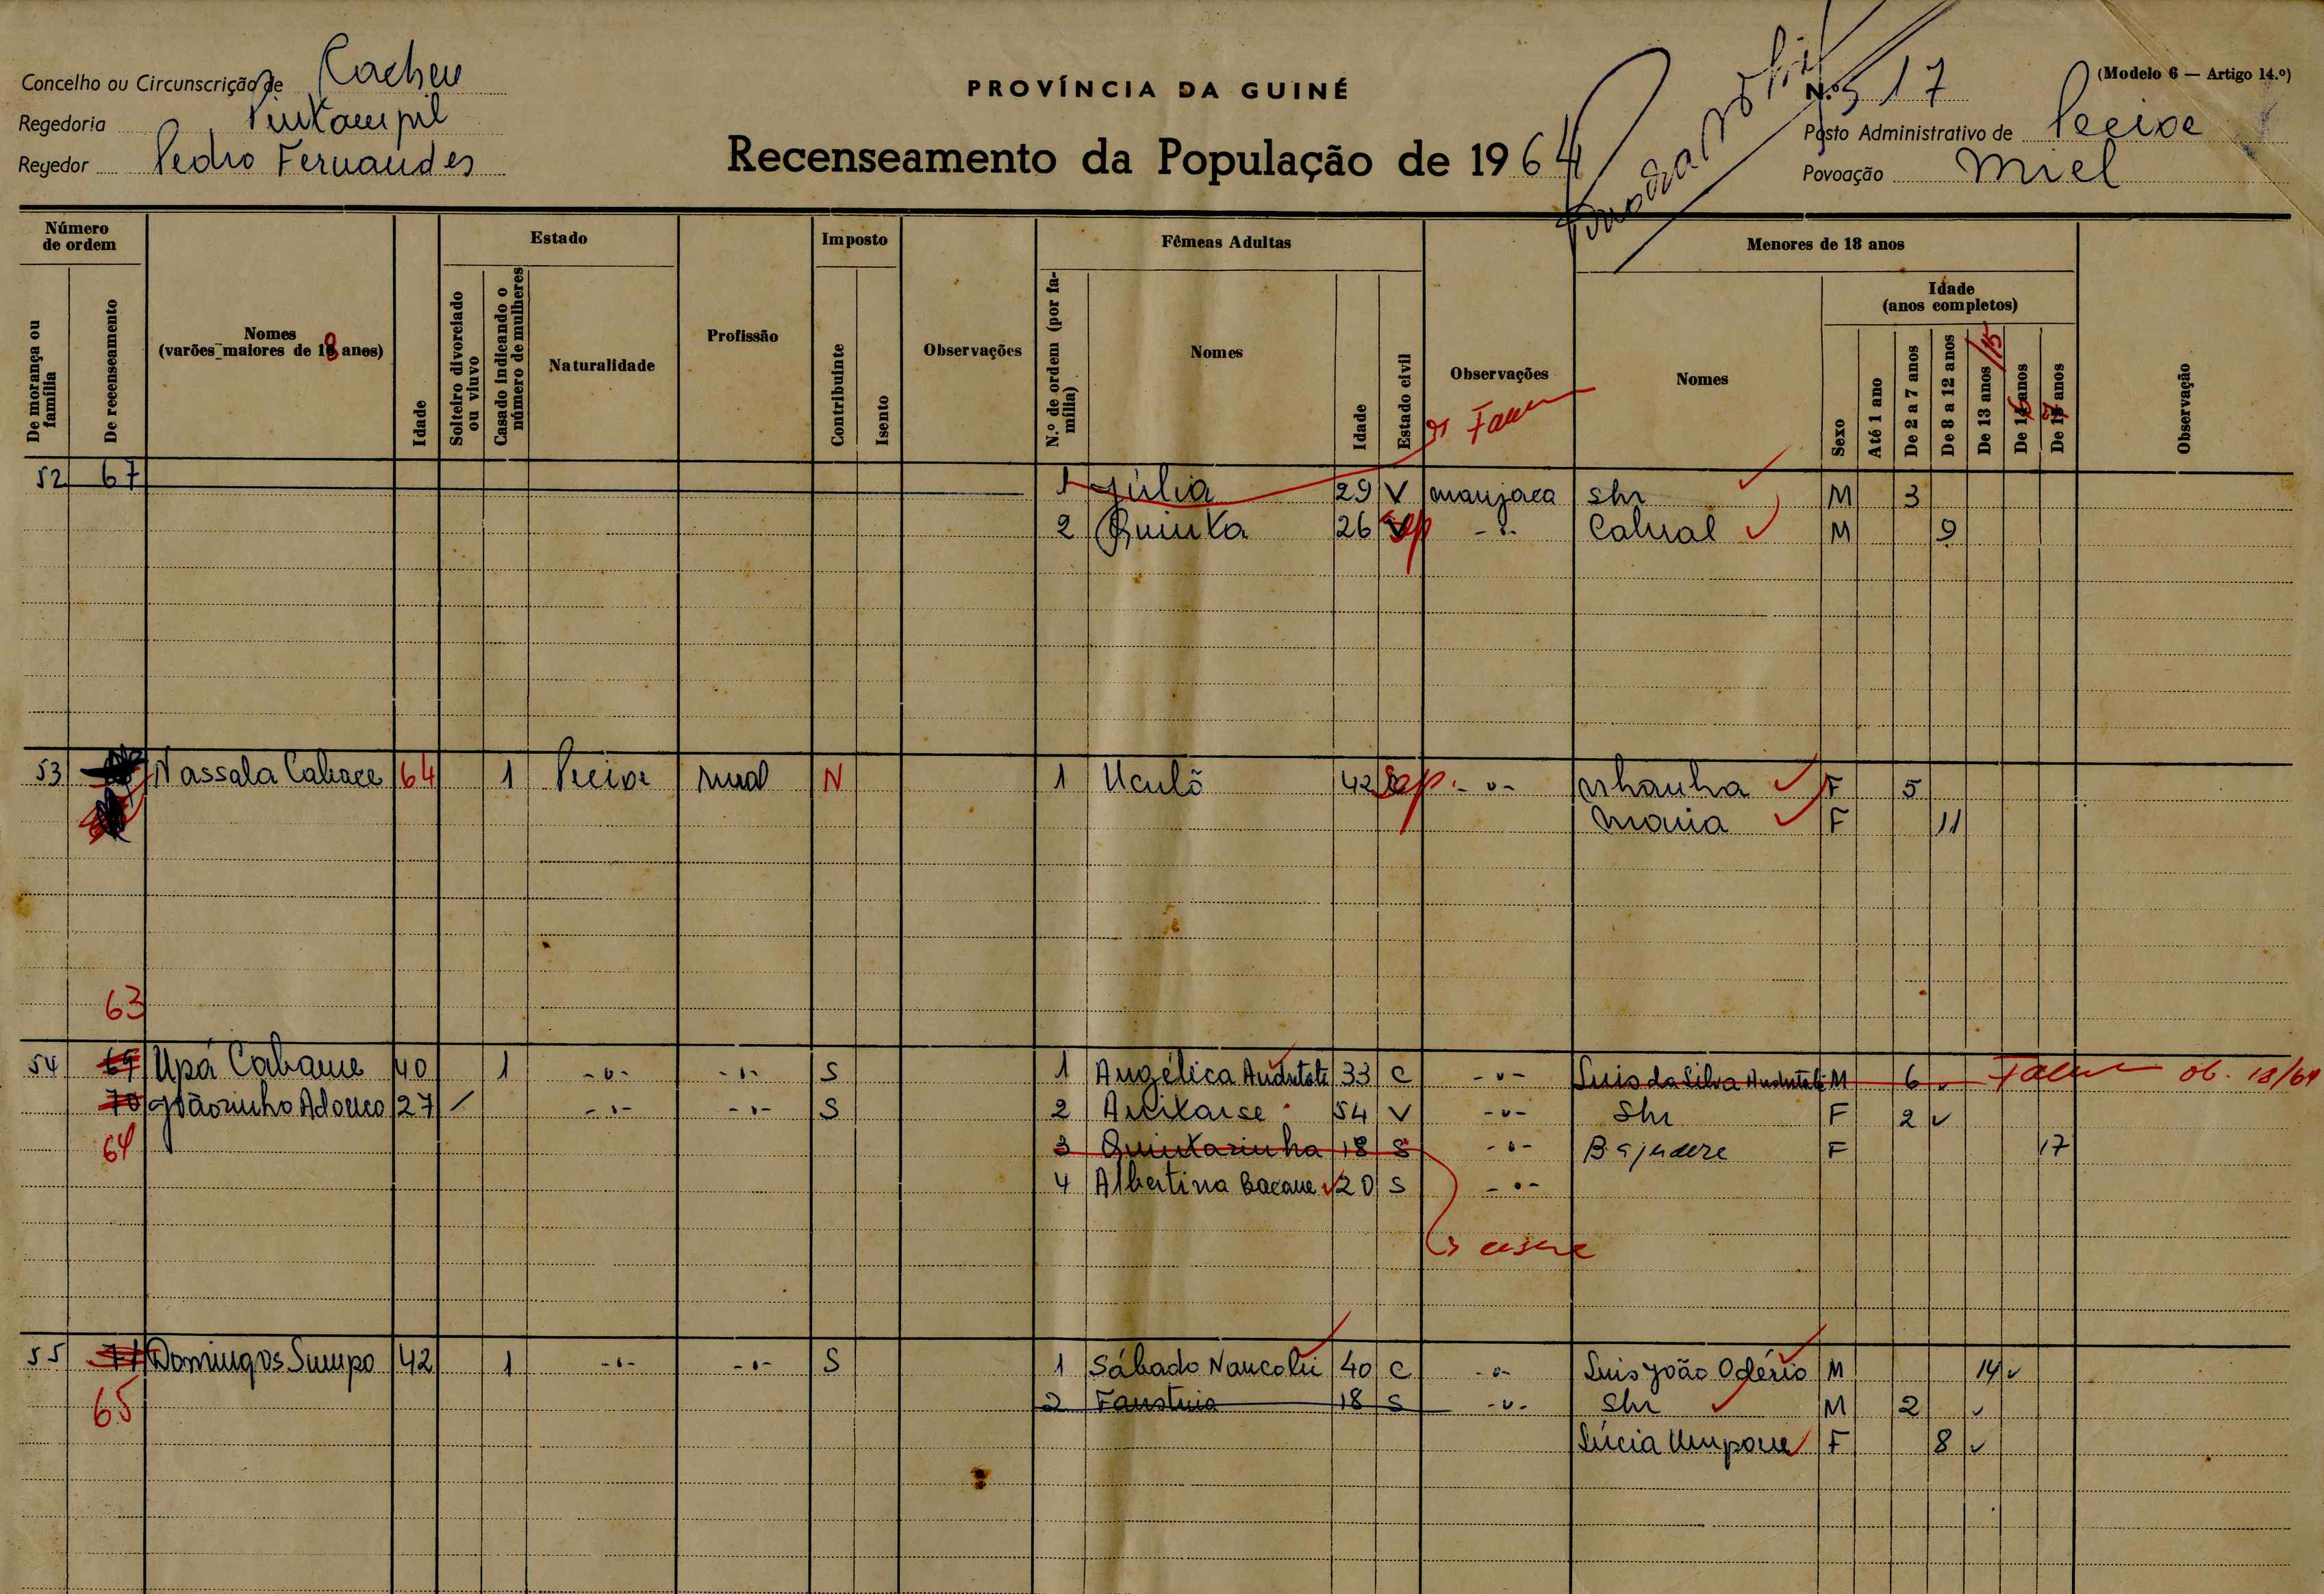 Concelho ou Circunscrição de Cacheu
PROVÍNCIA DA GUINÉ
N.º 17
(Modelo 6 — Artigo 14.º)
Regedoria
Recenseamento da População de 1964
Posto Administrativo de Pecixe
Regedor Pedro Fernandes
Povoação Miel
Número de ordem
De morança ou família
De recenseamento
Nomes (varões maiores de 18 anos)
Idade
Estado
Solteiro divorciado ou viuvo
Casado indicando o número de mulheres
Naturalidade
Profissão
Imposto
Contribuinte
Isento
Observações
Fêmeas Adultas
N.º de ordem (por família)
Nomes
Idade
Estado civil
Observações
Menores de 18 anos
Nomes
Sexo
Idade (anos completos)
Até 1 ano
De 2 a 7 anos
De 8 a 12 anos
De 13 anos /15
De 16 anos
De 17 anos
Observação
52 67 1 Júlia 29 V manjaca Shr M 3
2 Quinta 26 Sep -"- Cabral M 9
53 Nassala 64 1 Pecixe rural N 1 Uculõ 42 Sep. -"- Nhanha F 5
Maria F 11
63
54 69 Upá Cabame 40 1 -"- -"- S 1 Angélica 33 C -"- Luis da Silva M 6 ob. 18/64
70 Joãozinho 27 / -"- -"- S 2 54 V -"- Shr F 2
64 3 Quintazinha 18 S -"- F 17
4 Albertina Bacane 20 S -"-
55 71 Domingos Sumpo 42 1 -"- -"- S 1 Sábado 40 C -"- Luis João Odério M 14
65 2 18 S -"- Shr M 2
Lúcia F 8